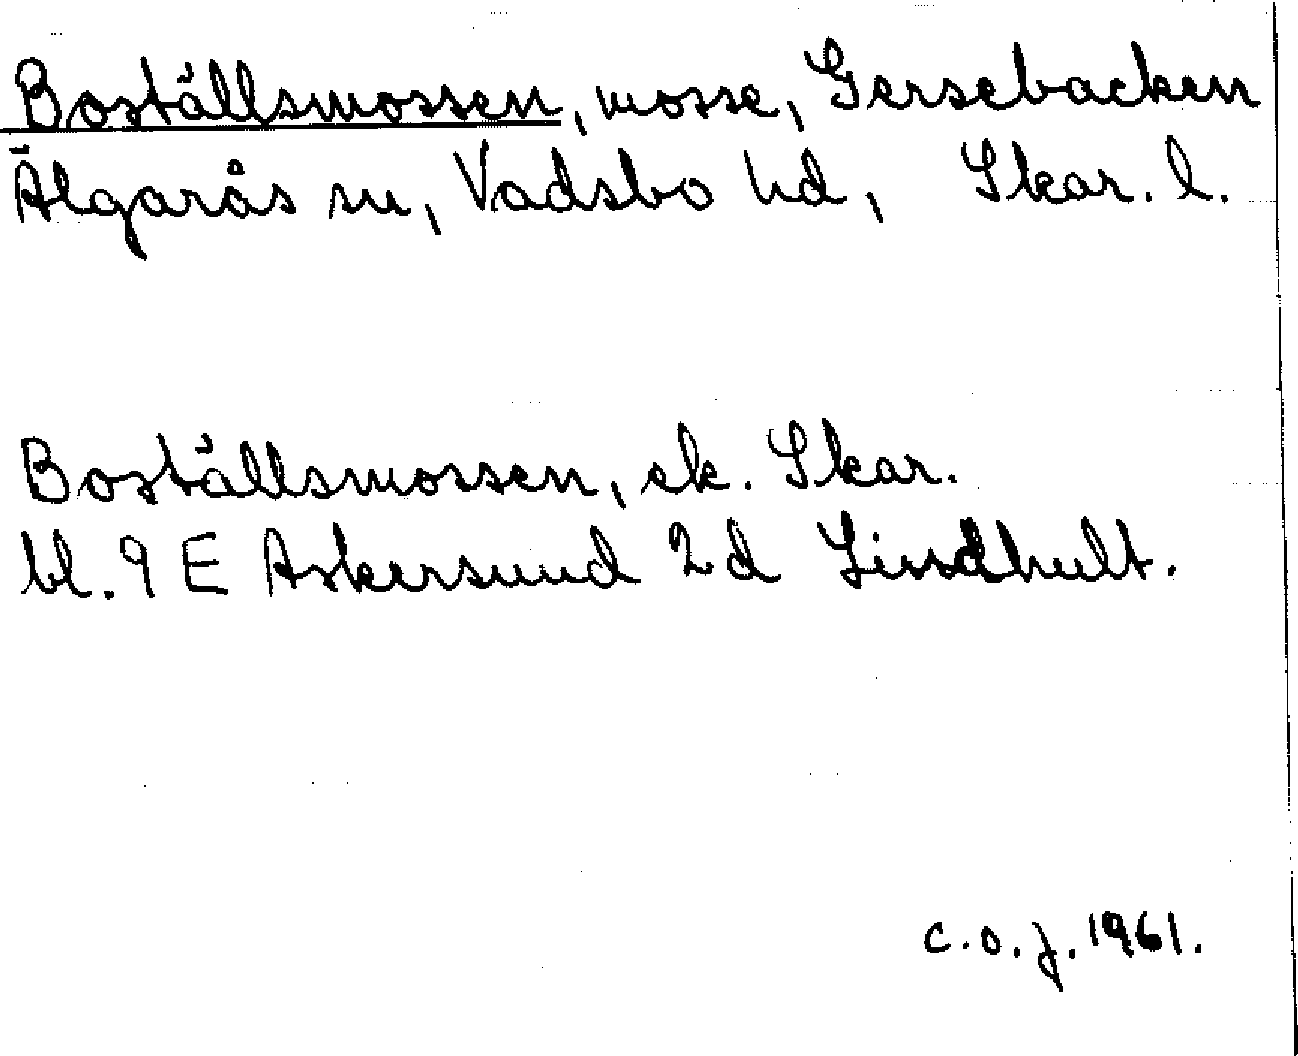 Boställsmossen, mosse, Gersebacken
Älgarås sn, Vadsbo hd, Skar. l.
Boställsmossen, ek. Skar.
bl. 9 E Askersund 2d Lindhult.
C.O.J. 1961.